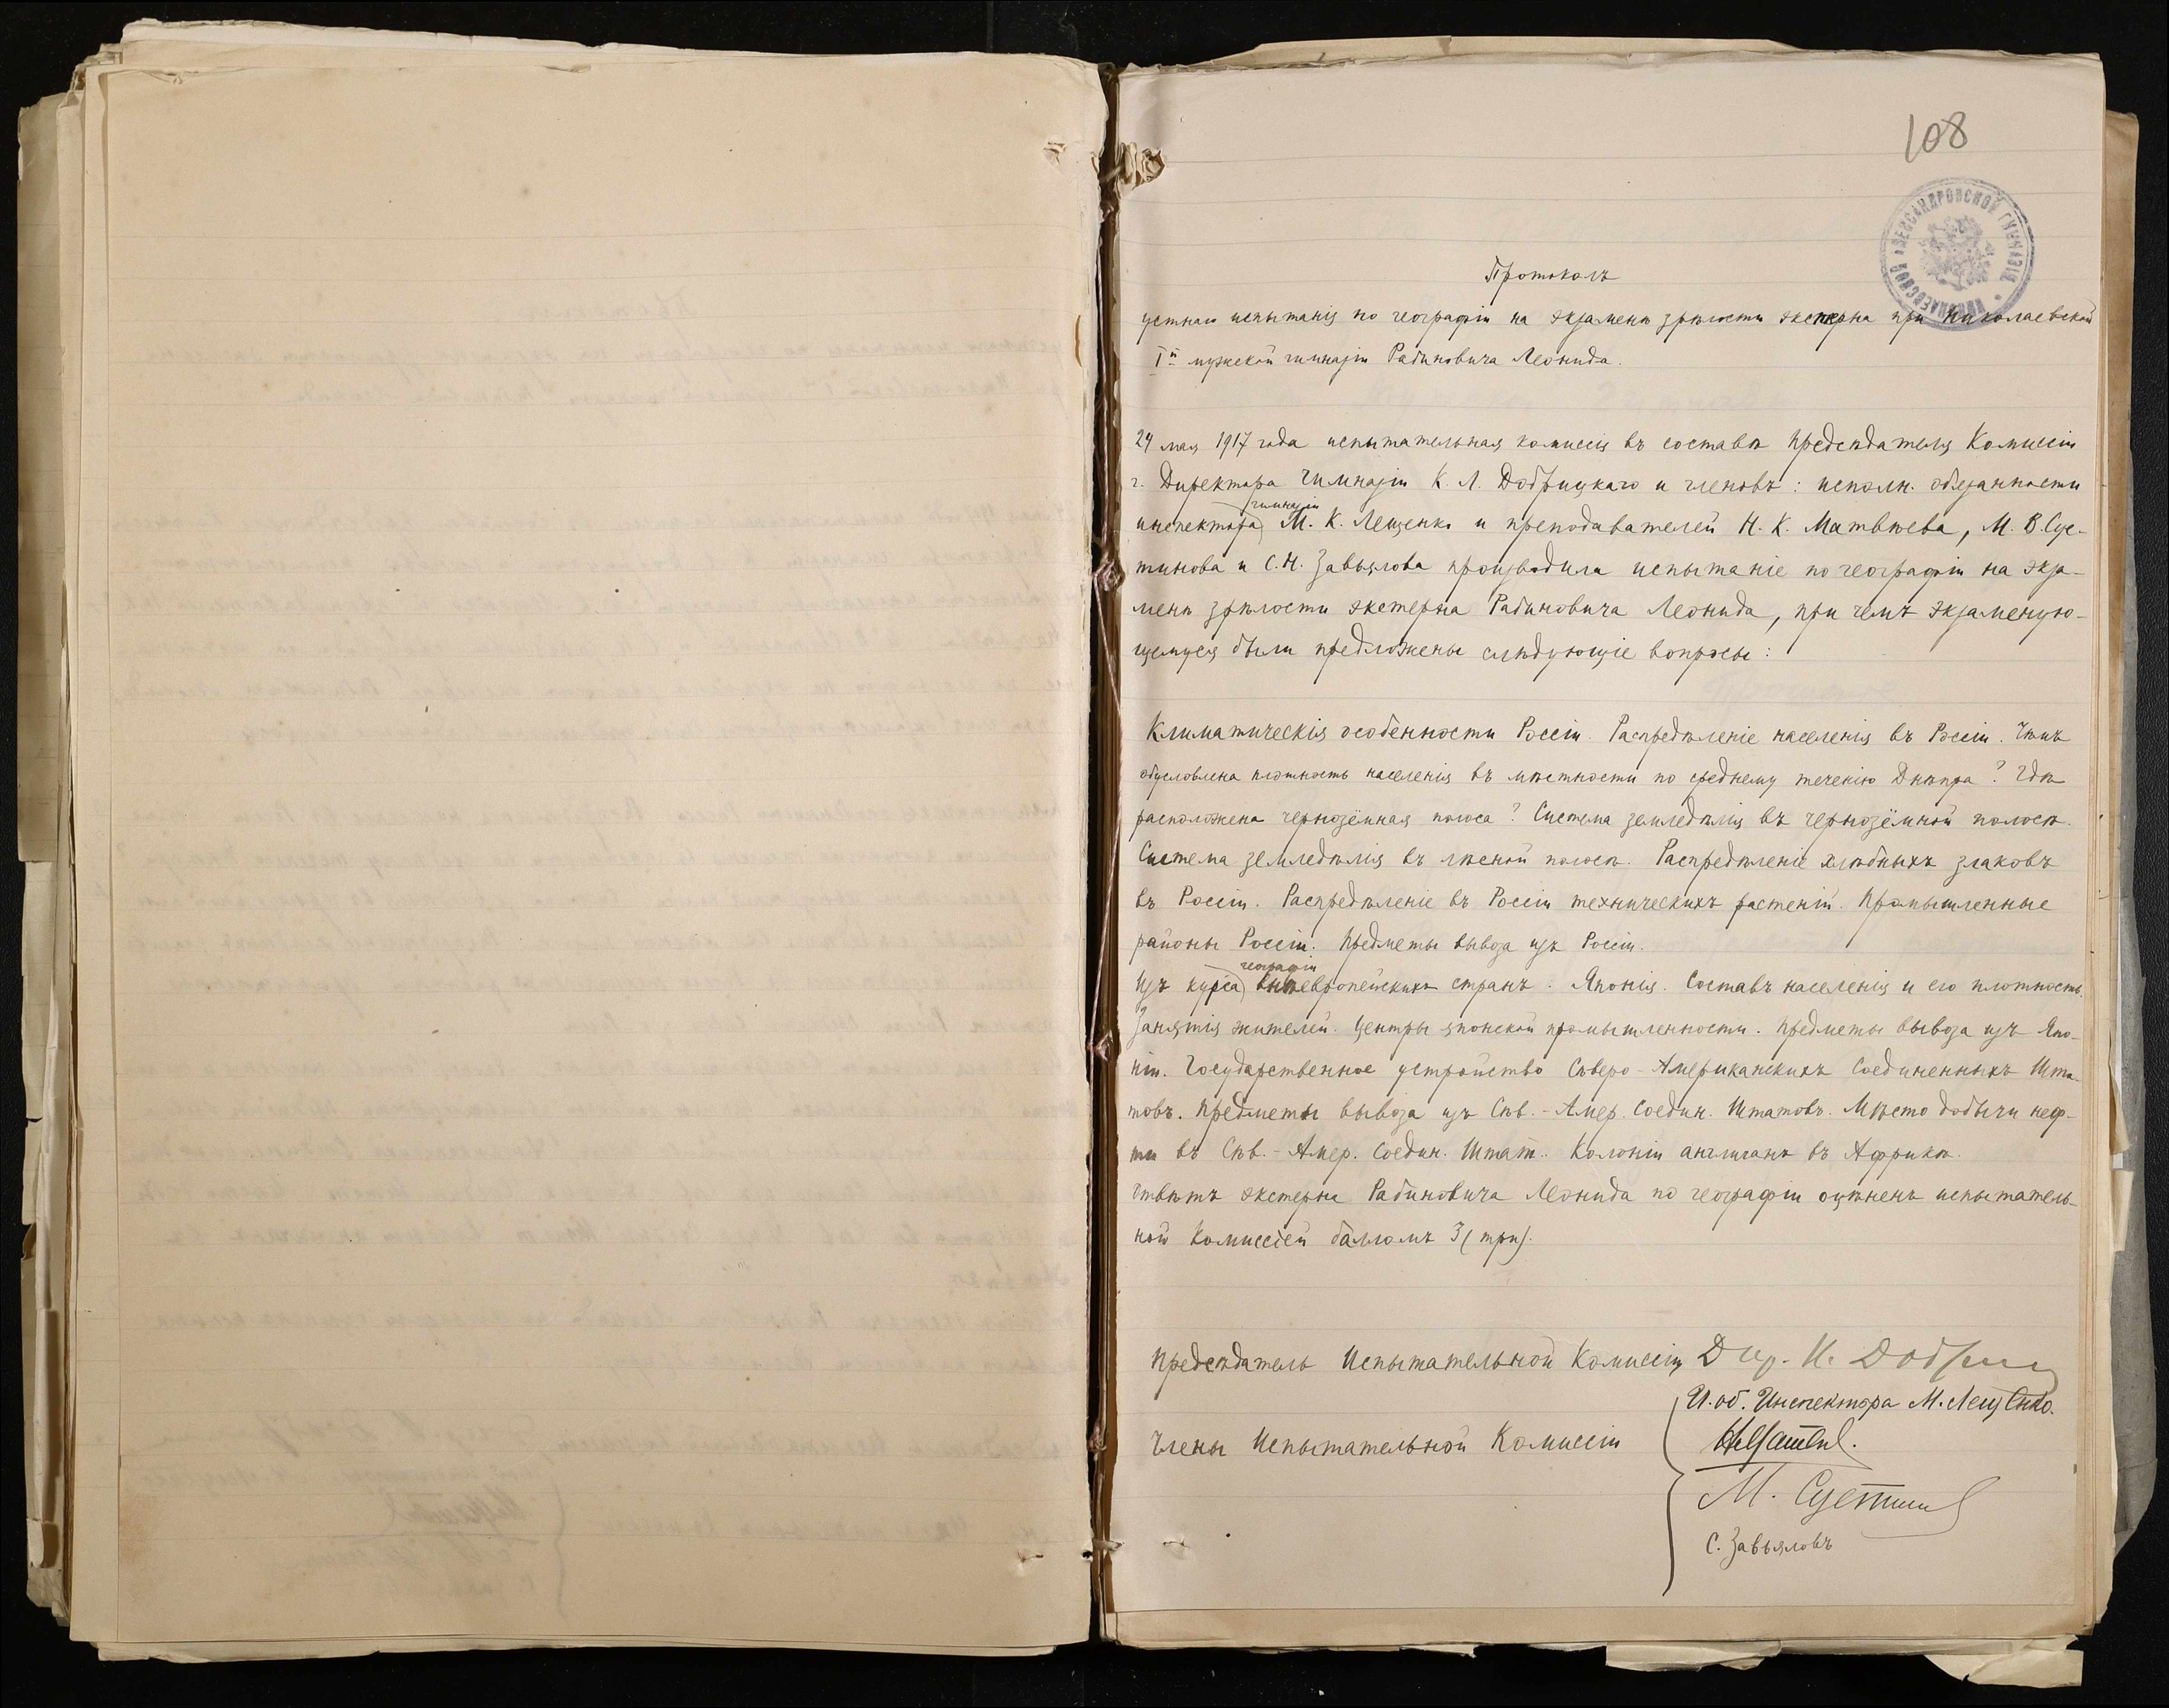 108
НИКОЛАЕВСКОЙ АЛЕКСАНДРОВСКОЙ ГИМНАЗІИ
Протоколъ
устнаго испытанія по географіи на экзаменѣ зрѣлости экстерна при Николаевской
Iй мужской гимназіи Рабиновича Леонида.
24 мая 1917 года испытательная комиссія въ составѣ Предсѣдателя Комиссіи
г. Директора Гимназіи К. Л. Добрицкаго и членовъ: исполн. обязанности
гимназіи
инспектора М. К. Лещенко и преподавателей Н. К. Матвѣева, М. В. Сус-
тинова и С. Н. Завьялова производила испытаніе по географіи на экза-
менѣ зрѣлости экстерна Рабиновича Леонида, при чемъ экзаменую-
щемуся были предложены слѣдующіе вопросы:
Климатическія особенности Россіи. Распредѣленіе населенія въ Россіи. Чѣмъ
обусловлена плотность населенія въ мѣстности по среднему теченію Днѣпра? Гдѣ
расположена чернозёмная полоса? Система земледѣлія въ чернозёмной полосѣ.
Система земледѣлія въ лѣсной полосѣ. Распредѣленіе хлѣбныхъ злаковъ
въ Россіи. Распредѣленіе въ Россіи техническихъ растеній. Промышленные
районы Россіи. Предметы вывоза изъ Россіи.
географіи
Изъ курса внѣевропейскихъ странъ: Японія. Составъ населенія и его плотность.
Занятія жителей. Центры японской промышленности. Предметы вывоза изъ Япо-
ніи. Государственное устройство Сѣверо-Американскихъ Соединенныхъ Шта-
товъ. Предметы вывоза изъ Сѣв.-Амер. Соедин. Штатовъ. Мѣсто добычи неф-
ти въ Сѣв.-Амер. Соедин. Штат. Колоніи англичанъ въ Африкѣ.
Отвѣтъ экстерна Рабиновича Леонида по географіи оцѣненъ испытатель-
ной Комиссіей балломъ 3 (три).
Предсѣдатель Испытательной Комиссіи Дир. К. Добриц
И. об. Инспектора М. Лещенко.
Члены Испытательной Комиссіи
М. Сустинов
С. Завьяловъ